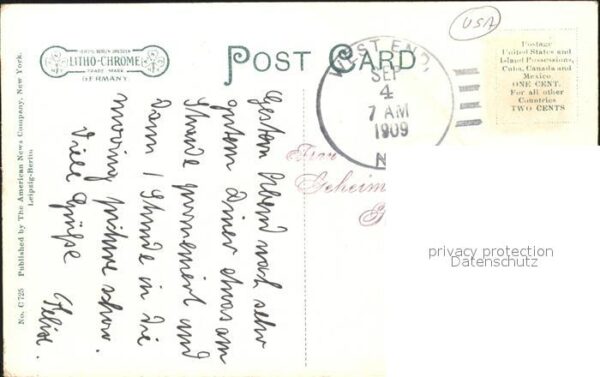 USA
NEW YORK·BERLIN·DRESDEN
LITHO-CHROME
TRADE MARK
GERMANY.
POST CARD
WEST END,
SEP
4
7 AM
1909
N
Postage
United States and
Island Possessions,
Cuba, Canada and
Mexico.
ONE CENT.
For all other
Countries
TWO CENTS
No. C 725 Published by The American News Company, New York.
Leipzig-Berlin
Gestern Abend nach sehr
gutem Diner etwas am
Strande promeniert und
Dann 1 Stunde in die
moving picture show.
Viele Grüße Felix.
Frau
Geheim
privacy protection
Datenschutz